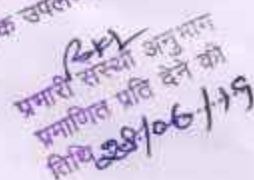 क उपल
प्रभारी संस्था अनुभाग
प्रमाणित प्रति देने की
तिथि 28/06/19